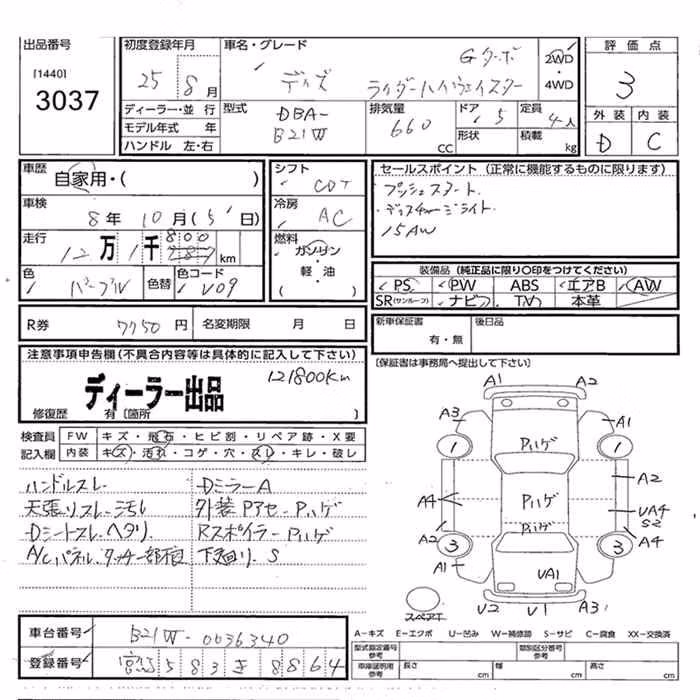 出品番号
[1440]
3037
初度登録年月
25年8月
車名・グレード
Gターボ
デイズ ライダーハイウェイスター
2WD
・
4WD
評価点
3
外装 内装
D C
ディーラー・並行
モデル年式 年
ハンドル 左・右
型式
DBA-
B21W
排気量
660
CC
ドア 5
形状
定員
4人
積載 kg
車歴
自家用・( )
車検
8年10月(5日)
走行
12万1千800km
色
パープル
色替
色コード
V09
シフト
CVT
冷房
AC
燃料
ガソリン
・
軽・油
( )
セールスポイント (正常に機能するものに限ります)
プッシュスタート.
ディスチャージライト
15AW
装備品 (純正品に限り○印をつけてください)
PS PW ABS エアB AW
SR(サンルーフ) ナビ TV 本革
R券 7750円
名変期限 月 日
新車保証書
有・無
後日品
注意事項申告欄(不具合内容等は具体的に記入して下さい)
121800Km
ディーラー出品
修復歴 有 [箇所 ]
[保証書は事務局へ提出して下さい]
検査員
記入欄
FW キズ・飛石・ヒビ割・リペア跡・X要
内装 キズ・汚れ・コゲ・穴・スレ・キレ・破レ
ハンドルスレ DミラーA
天張りスレ汚れ 外装PアセーPハゲ
Dシートスレ.ヘタリ RスポイラーPハゲ
A/Cパネル.タッチ一部不良 下廻り.S
A1 A2
A3 A1
1 1
Pハゲ
A2
A4 Pハゲ
UA4
S2
Pハゲ
A2 3 3 A4
A1 UA1
U2 U1 A3
スペアT
A-キズ E-エクボ U-凹み W-補修跡 S-サビ C-腐食 XX-交換済
車台番号 B21W-0036340
登録番号 583き8864
型式指定番号
参考
類別区分番号
参考
車庫証明用
参考
長さ cm
幅 cm
高さ cm